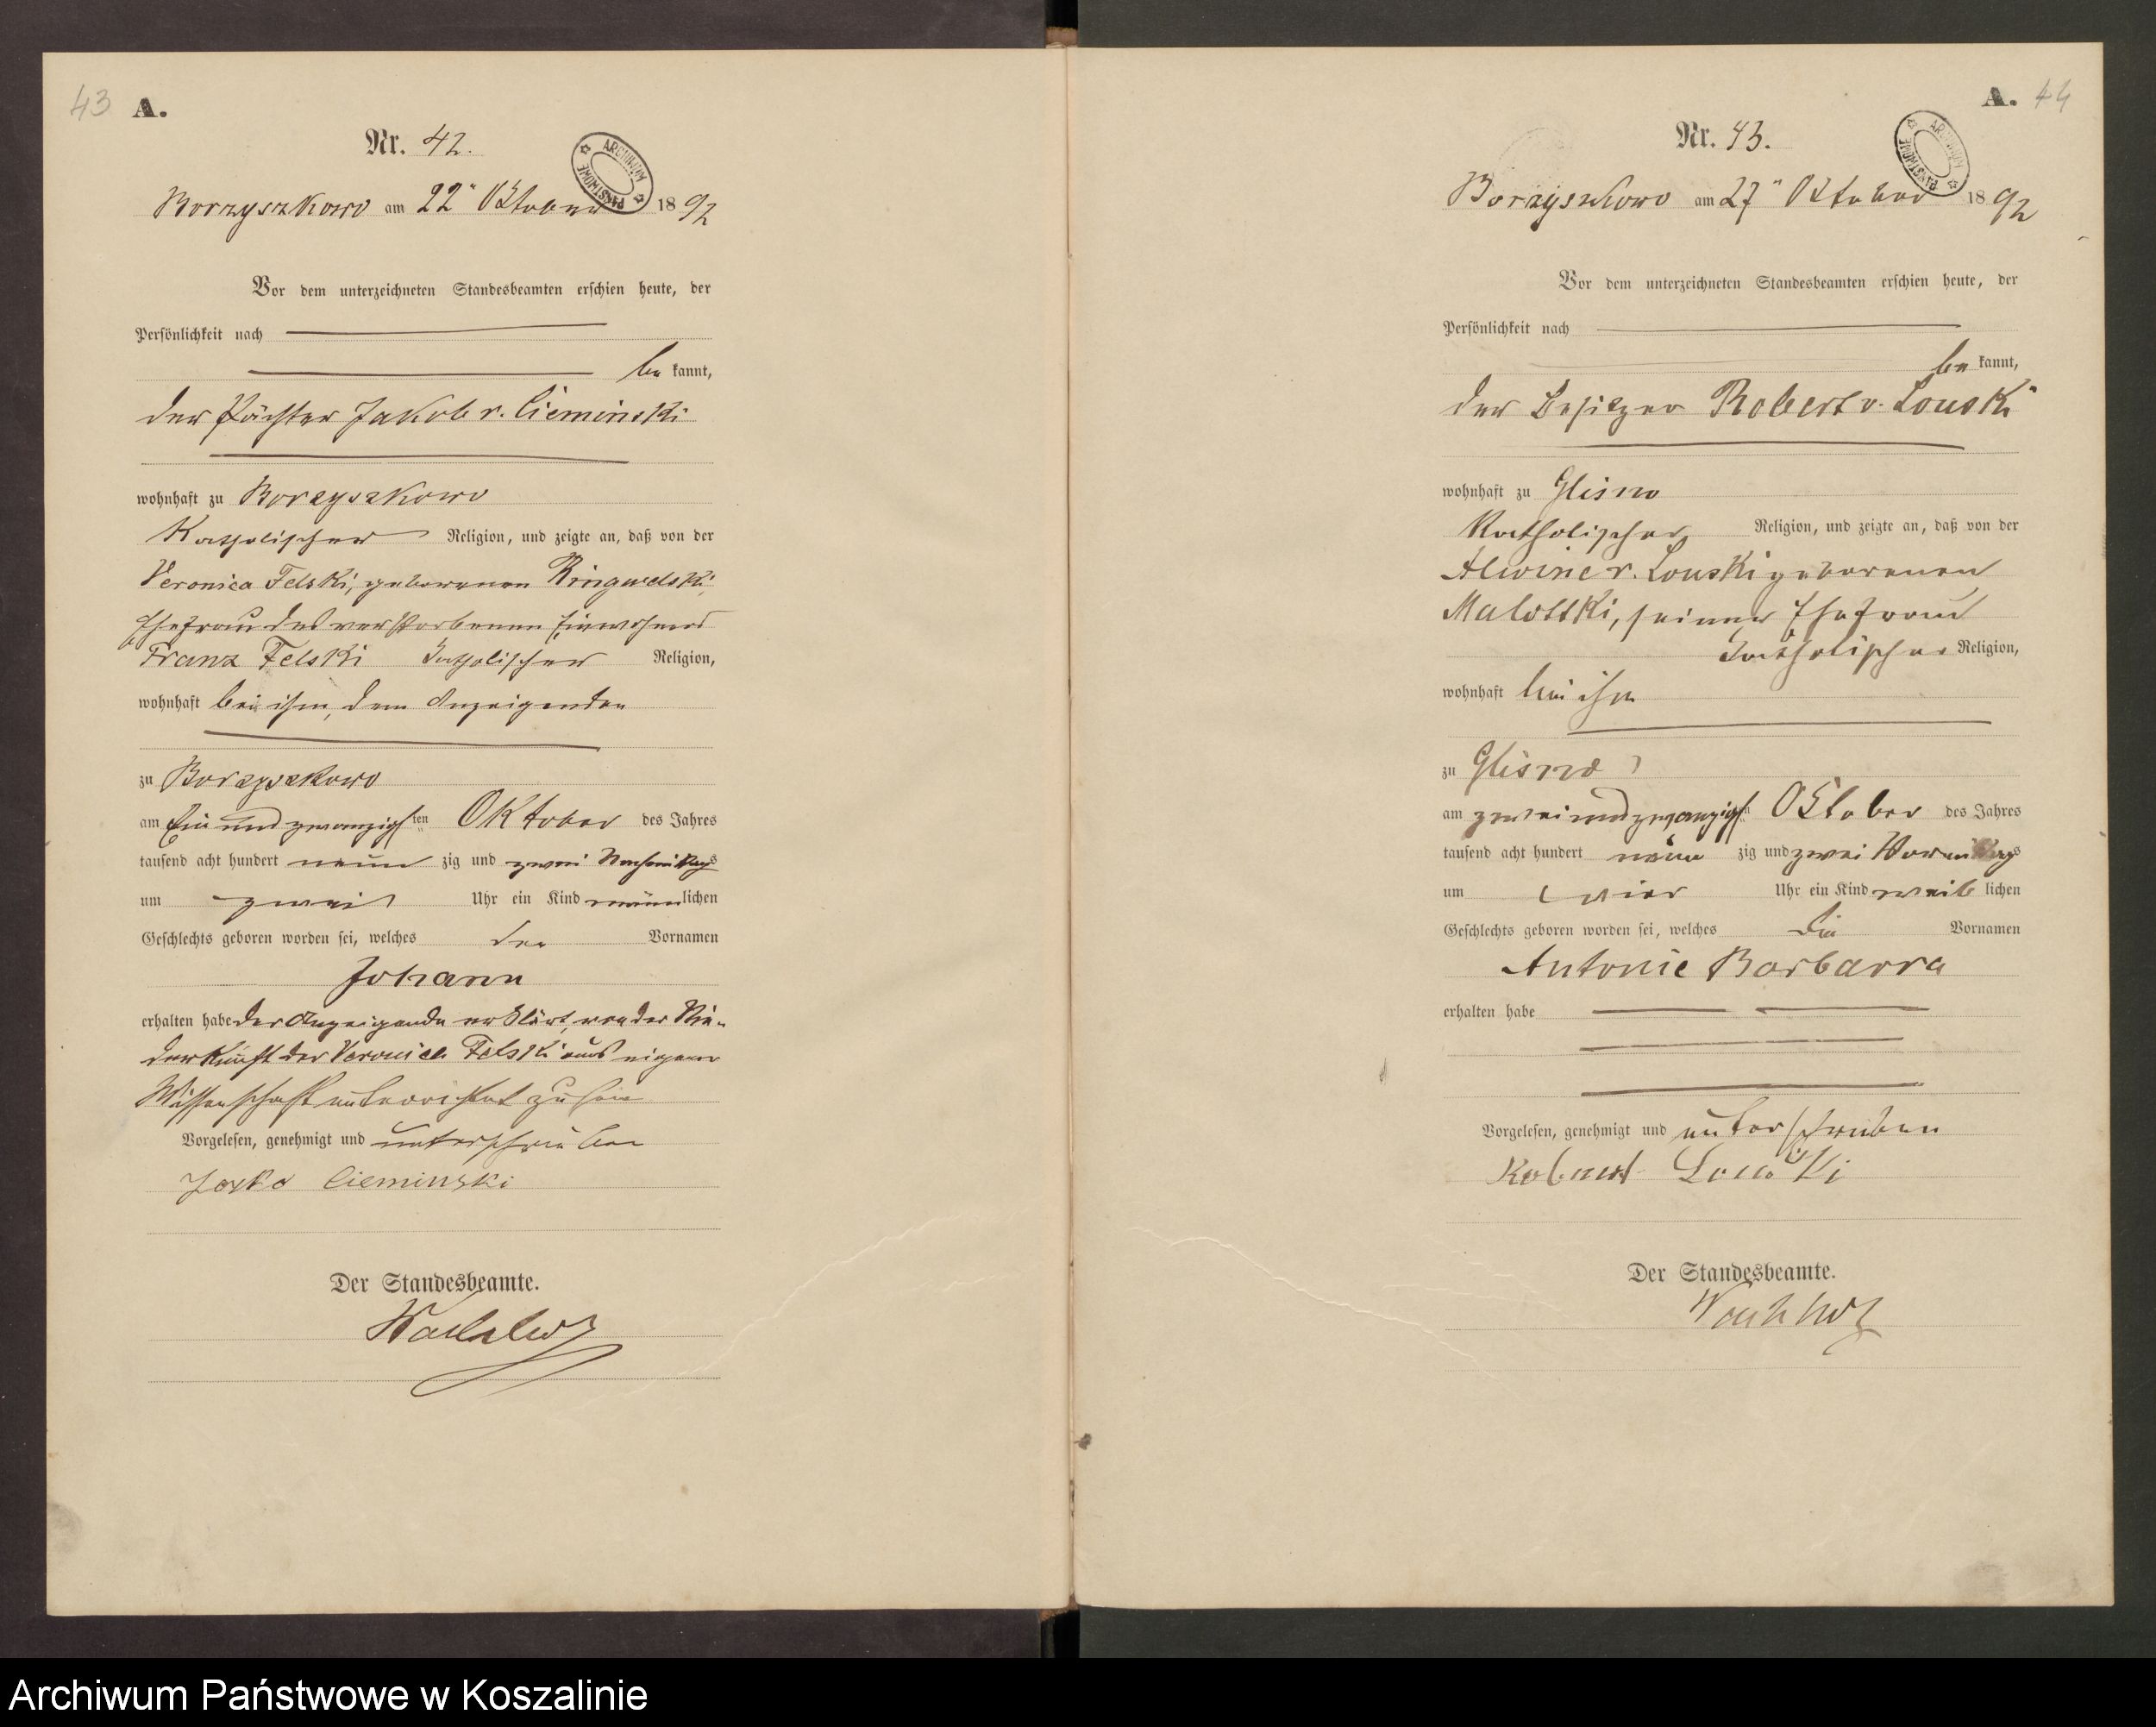 43 A.
Nr. 42.
Borzyszkowo am 22ⁿ Oktober 1892
Vor dem unterzeichneten Standesbeamten erschien heute, der
Persönlichkeit nach
be kannt,
der Pächter Jakob v. Cieminski
wohnhaft zu Borzyszkowo
Katholischer Religion, und zeigte an, daß von der
Veronica Felski, geborenen Ringwelski,
Ehefrau des verstorbenen Einwohners
Franz Felski katholischer Religion,
wohnhaft bei ihm, dem Anzeigenden
zu Borzyszkowo
am Ein und zwanzigsten Oktober des Jahres
tausend acht hundert neun zig und zwei Nachmittags
um zwei Uhr ein Kind männlichen
Geschlechts geboren worden sei, welches den Vornamen
Johann
erhalten habe der Anzeigende erklärt, von der Nie-
derkunft der Veronica Felski aus eigener
Wissenschaft unterrichtet zu sein
Vorgelesen, genehmigt und unterschrieben
Cieminski
Der Standesbeamte.
A. 44
Nr. 43.
Borzyszkowo am 27ⁿ Oktober 1892
Vor dem unterzeichneten Standesbeamten erschien heute, der
Persönlichkeit nach
be kannt,
der Besitzer Robert v. Louski
wohnhaft zu Glisno
Katholischer Religion, und zeigte an, daß von der
Alwine v. Louski geborenen
Malottki, seiner Ehefrau
katholischer Religion,
wohnhaft bei ihm
zu Glisno
am zwei und zwanzigsten Oktober des Jahres
tausend acht hundert neun zig und zwei Vormittags
um vier Uhr ein Kind weib lichen
Geschlechts geboren worden sei, welches die Vornamen
Antonie Barbarra
erhalten habe
Vorgelesen, genehmigt und unterschrieben
Robert Louski
Der Standesbeamte.
ARCHIWUM PAŃSTWOWE
ARCHIWUM PAŃSTWOWE
Archiwum Państwowe w Koszalinie